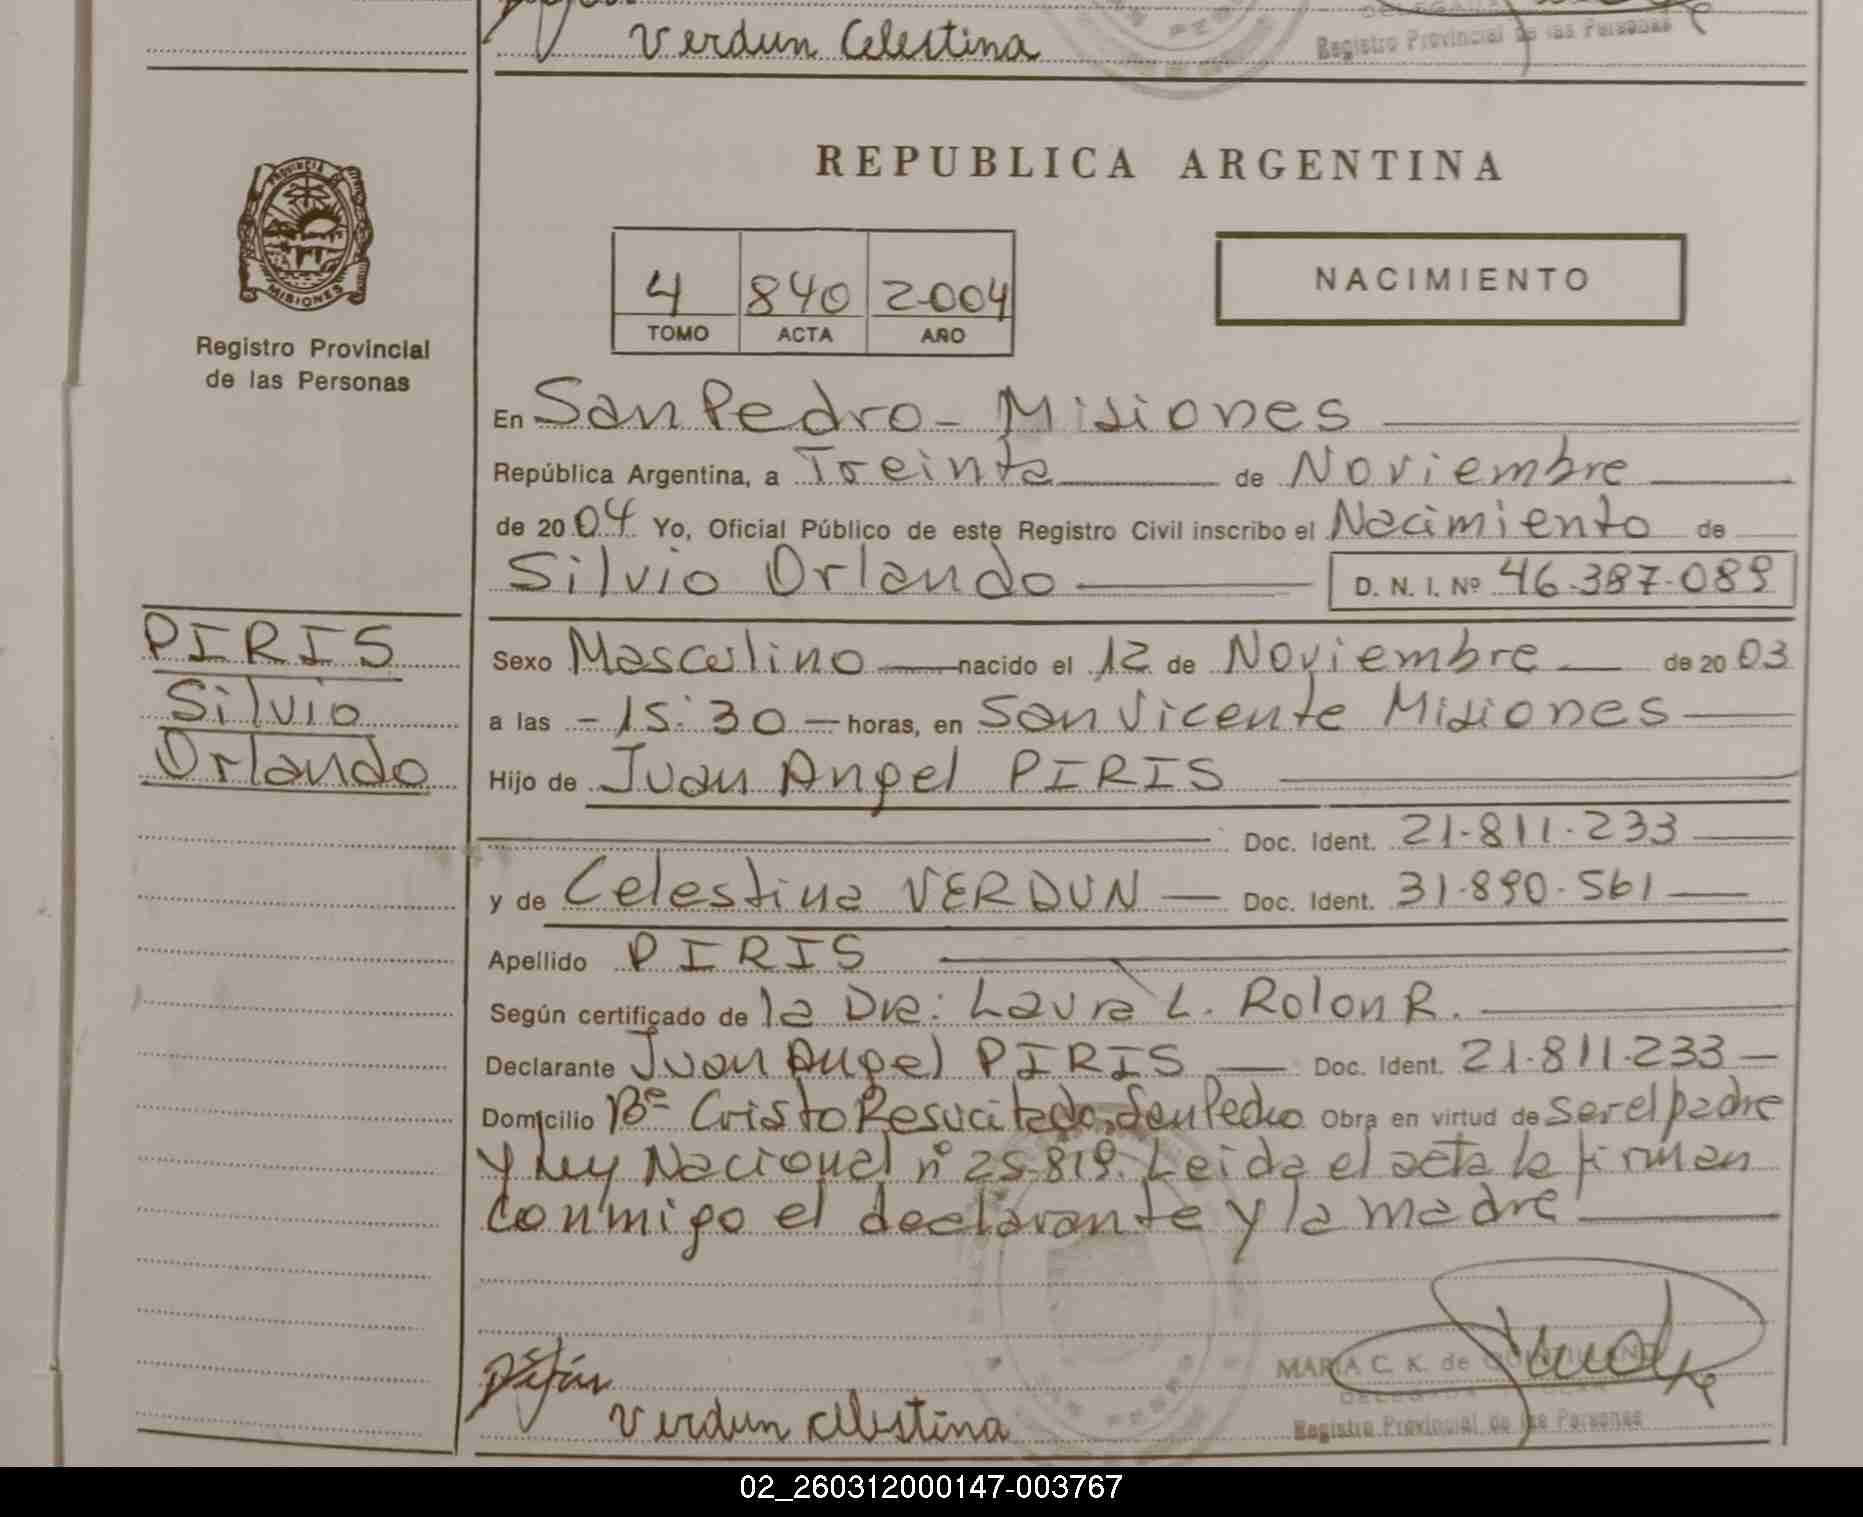 Verdun Celestina
Registro Provincial de las Personas
REPUBLICA ARGENTINA
PROVINCIA DE
MISIONES
Registro Provincial
de las Personas
4 840 2004
TOMO ACTA AÑO
NACIMIENTO
En San Pedro - Misiones
República Argentina, a Treinta de Noviembre
de 20 04 Yo, Oficial Público de este Registro Civil inscribo el Nacimiento de
Silvio Orlando D. N. I. Nº 46.387.089
PIRIS
Silvio
Orlando
Sexo Masculino nacido el 12 de Noviembre de 20 03
a las - 15:30 - horas, en San Vicente Misiones
Hijo de Juan Angel PIRIS
Doc. Ident. 21.811.233
y de Celestina VERDUN Doc. Ident. 31.890.561
Apellido PIRIS
Según certificado de la Dra: Laura L. Rolon R.
Declarante Juan Angel PIRIS Doc. Ident. 21.811.233
Domicilio Bº Cristo Resucitado, San Pedro Obra en virtud de ser el padre
y ley Nacional nº 25.819. Leida el acta la firman
conmigo el declarante y la madre
Verdun Celestina
MARIA C. K. de
Registro Provincial de las Personas
02_260312000147-003767